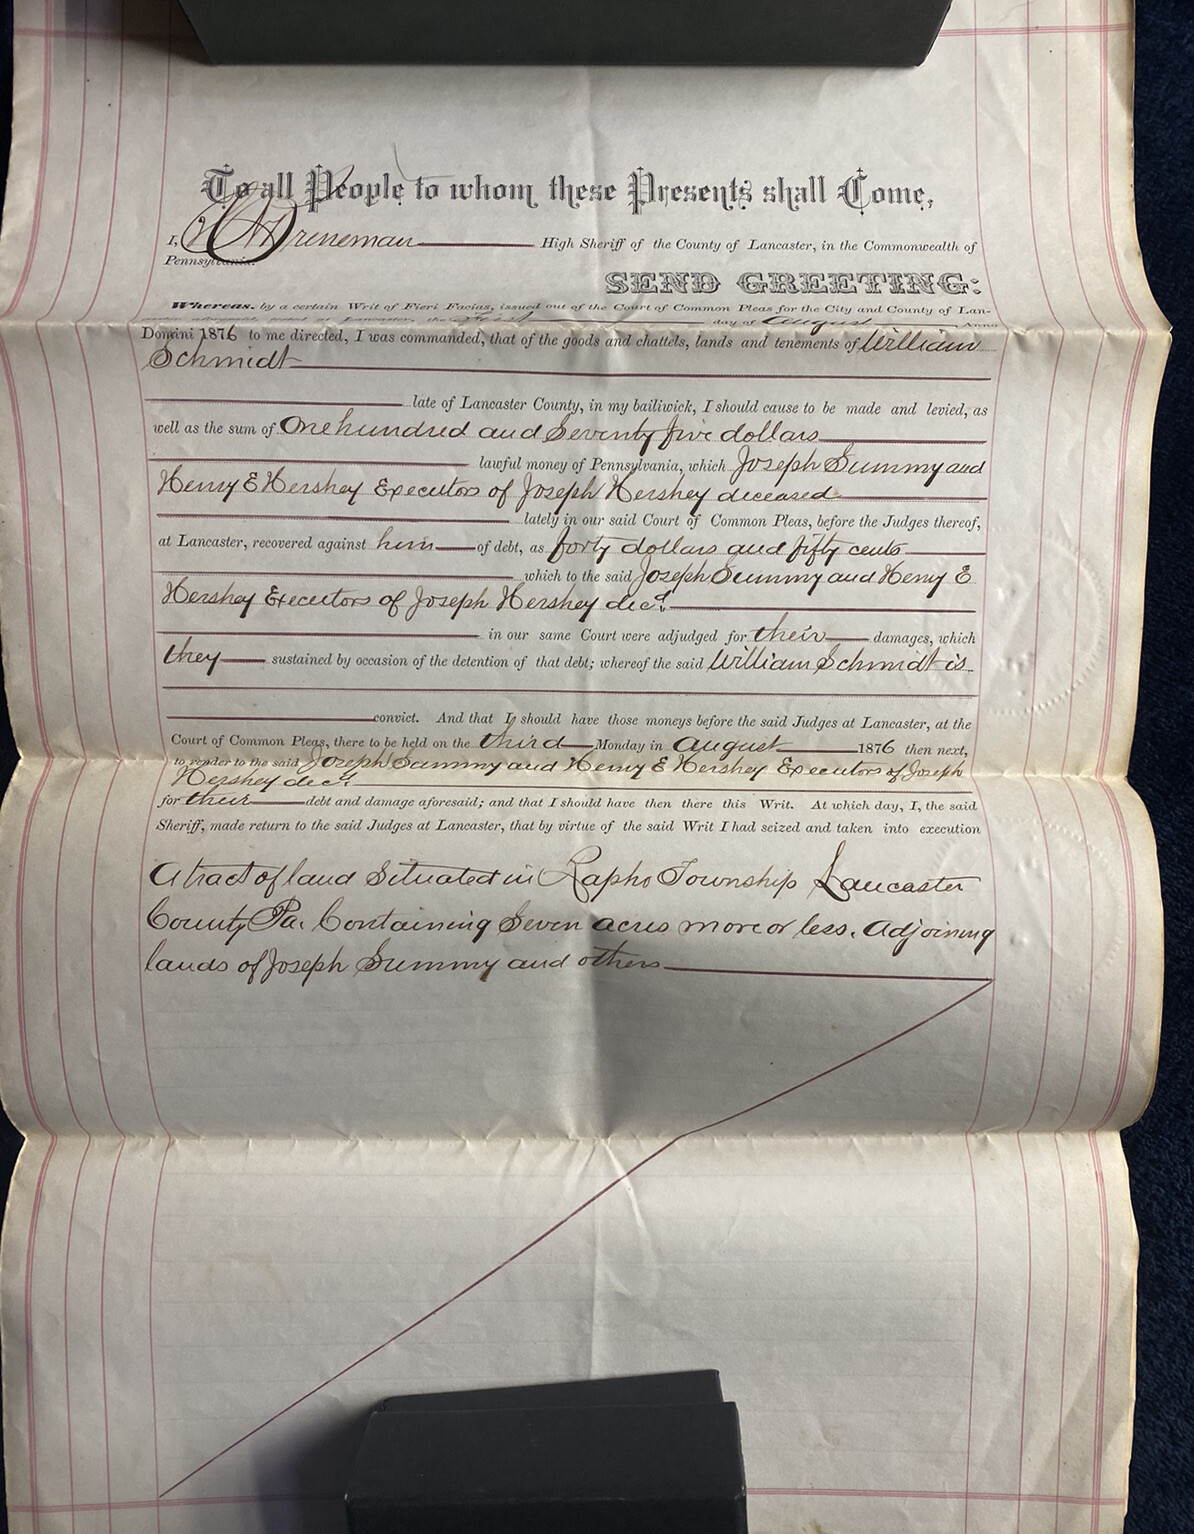 To all People to whom these Presents shall Come,
I, Breneman High Sheriff of the County of Lancaster, in the Commonwealth of
Pennsylvania.
SEND GREETING:
Whereas, by a certain Writ of Fieri Facias, issued out of the Court of Common Pleas for the City and County of Lan-
at Lancaster, the first day of August Anno
Domini 1876 to me directed, I was commanded, that of the goods and chattels, lands and tenements of William
Schmidt
late of Lancaster County, in my bailiwick, I should cause to be made and levied, as
well as the sum of One hundred and Seventy five dollars
lawful money of Pennsylvania, which Joseph Summy and
Henry E Hershey Executors of Joseph Hershey deceased
lately in our said Court of Common Pleas, before the Judges thereof,
at Lancaster, recovered against him of debt, as forty dollars and fifty cents
which to the said Joseph Summy and Henry E
Hershey Executors of Joseph Hershey decd.
in our same Court were adjudged for their damages, which
they sustained by occasion of the detention of that debt; whereof the said William Schmidt is
convict. And that I should have those moneys before the said Judges at Lancaster, at the
Court of Common Pleas, there to be held on the third Monday in August 1876 then next,
to render to the said Joseph Summy and Henry E Hershey Executors of Joseph
Hershey decd.
for their debt and damage aforesaid; and that I should have then there this Writ. At which day, I, the said
Sheriff, made return to the said Judges at Lancaster, that by virtue of the said Writ I had seized and taken into execution
A tract of land Situated in Rapho Township Lancaster
County Pa. Containing Seven acres more or less. Adjoining
lands of Joseph Summy and others